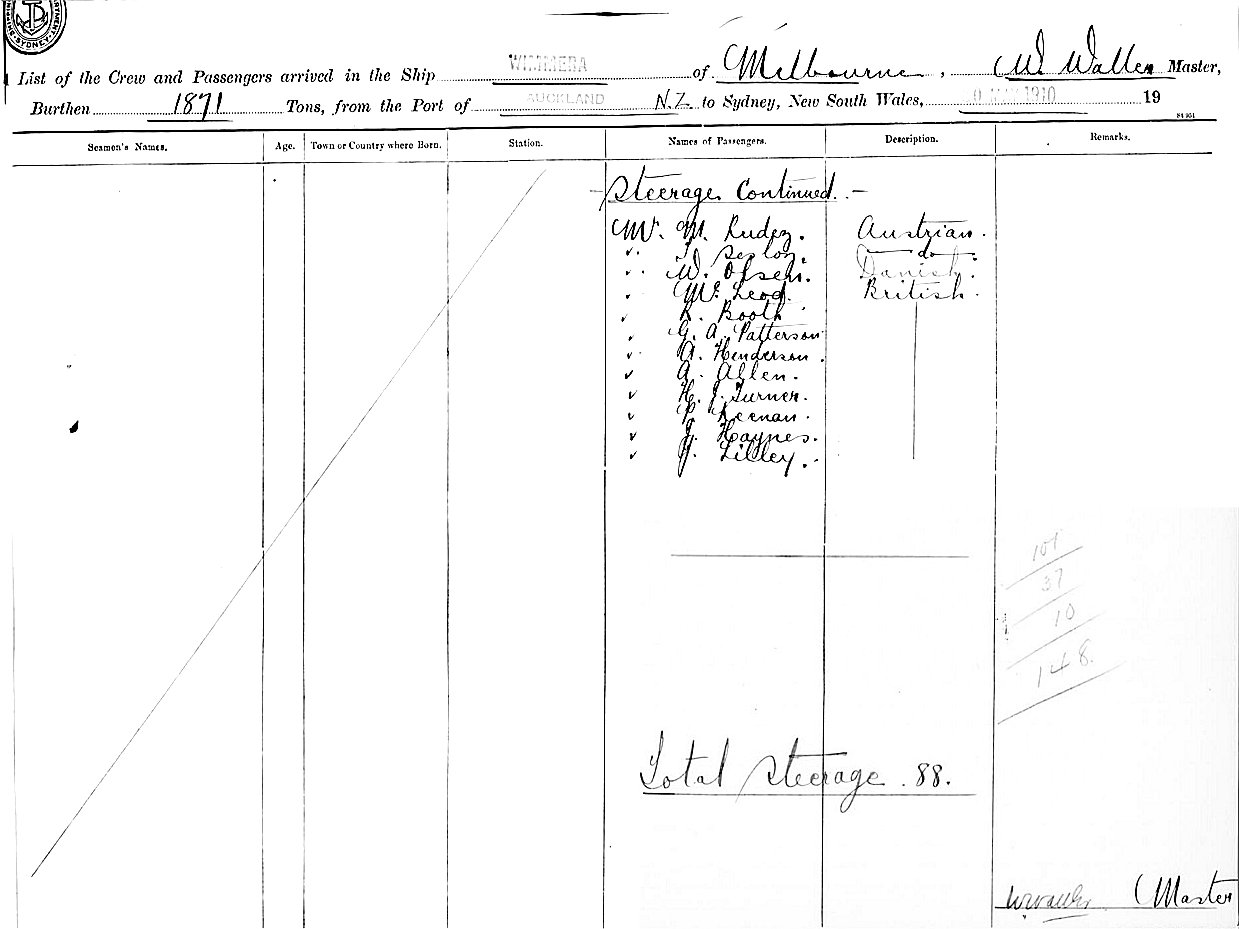 SYDNEY
List of the Crew and Passengers arrived in the Ship WIMMERA of Melbourne, W. Waller Master,
Burthen 1871 Tons, from the Port of AUCKLAND N.Z. to Sydney, New South Wales, MAY 1910 19
Seamen's Names. Age. Town or Country where Born. Station. Names of Passengers. Description. Remarks.
Steerage Continued. -
Mr. M. Rudez. Austrian.
" do.
" W. Olsen. Danish.
" McLeod. British.
" R. Booth
" G. A. Patterson
" A. Henderson.
" A. Allen.
" H. J. Turner.
" P. Keenan.
" J. Haynes.
" J. Lilley.
101
37
10
148.
Total Steerage. 88.
Master